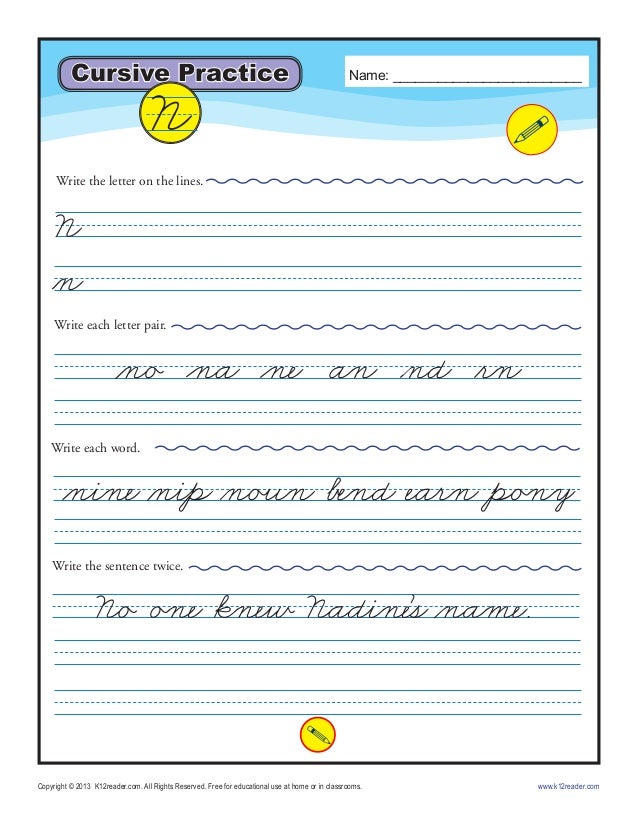 Cursive Practice
Name: ________________________
N
Write the letter on the lines.
N
n
Write each letter pair.
no na ne an nd rn
Write each word.
nine nip noun bend earn pony
Write the sentence twice.
No one knew Nadine's name.
Copyright © 2013 K12reader.com. All Rights Reserved. Free for educational use at home or in classrooms. www.k12reader.com